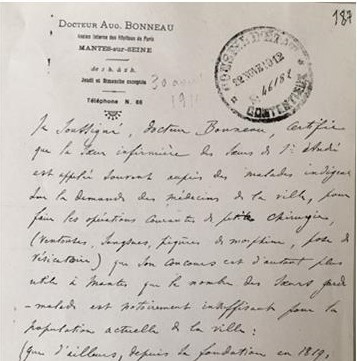 187
DOCTEUR AUG. BONNEAU
Ancien Interne des Hôpitaux de Paris
MANTES-sur-SEINE
de 1 h. à 3 h.
Jeudi et Dimanche exceptés
Téléphone N. 86
CONSEIL D'ETAT
22 NOV 1912
CONTENTIEUX
Je soussigné, Docteur Bonneau, certifie
que la sœur infirmière des Sœurs de St André
est appelée souvent auprès des malades indigents
sur la demande des médecins de la ville, pour
faire les opérations courantes de petite chirurgie,
(ventouses, sangsues, piqûres de morphine, pose de
vésicatoire) que son concours est d'autant plus
utile à Mantes que le nombre des sœurs garde
-malades est notoirement insuffisant pour la
population actuelle de la ville :
(que d'ailleurs, depuis la fondation en 1819,